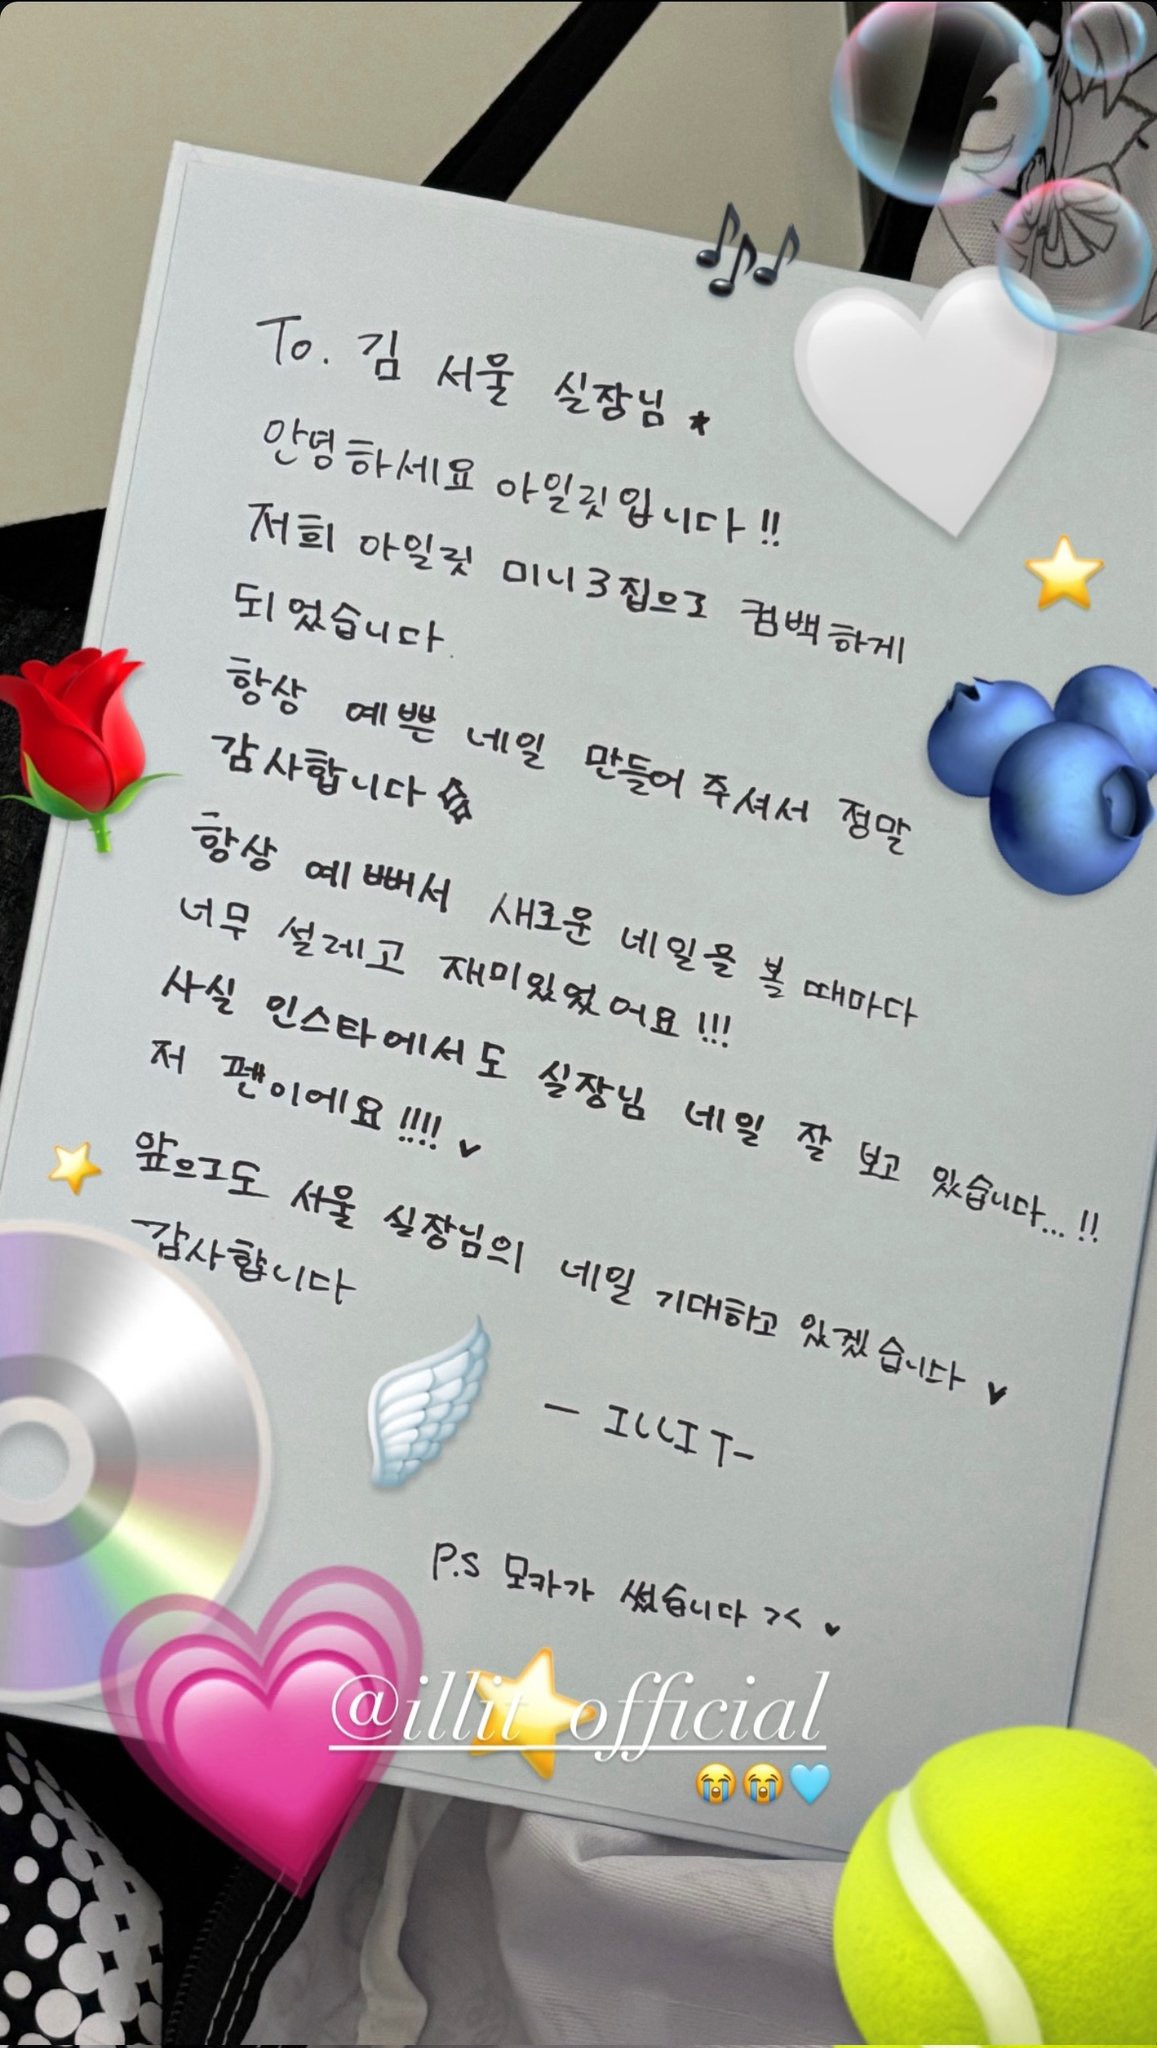 To. 김 서울 실장님 ★
안녕하세요 아일릿입니다!!
저희 아일릿 미니3집으로 컴백하게
되었습니다
항상 예쁜 네일 만들어 주셔서 정말
감사합니다
항상 예뻐서 새로운 네일을 볼 때마다
너무 설레고 재미있었어요!!!
사실 인스타에서도 실장님 네일 잘 보고 있습니다...!!
저 팬이에요!!!! ♥
앞으로도 서울 실장님의 네일 기대하고 있겠습니다 ♥
감사합니다
— ILLIT-
P.S 모카가 썼습니다 >< ♥
@illit_official
😭😭🩵